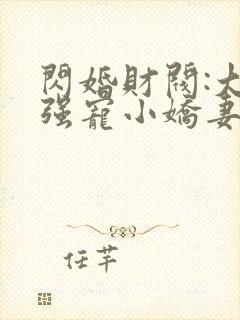 閃婚財閥:大
强寵小嬌妻
任芊